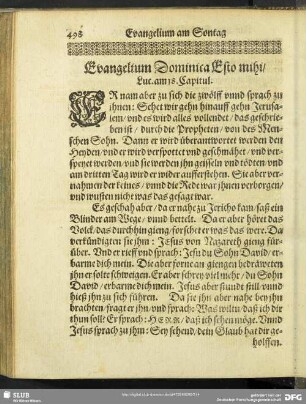 498 Evangelium am Sontag
Evangelium Dominica Esto mihi/
Luc. am 18. Capitul.
ER nam aber zu sich die zwölff vnnd sprach zu
jhnen: Sehet wir gehn hinauff gehn Jerusa-
lem/ vnd es wird alles vollendet/ das geschrie-
ben ist/ durch die Propheten/ von des Men-
schen Sohn. Dann er wirt überantwortet werden den
Heyden/ vnd er wird verspottet vnd geschmähet/ vnd ver-
speyet werden/ vnd sie werden jhn geisseln vnd tödten/ vnd
am dritten Tag wird er wider aufferstehen. Sie aber ver-
nahmen der keines/ vnnd die Rede war jhnen verborgen/
vnd wusten nicht was das gesagt war.
Es geschah aber/ da er nahe zu Jericho kam/ saß ein
Blinder am Wege/ vnnd bettelt. Da er aber höret das
Volck/ das durchhin gieng/ forschet er was das were. Da
verkündigten sie jhm: Jesus von Nazareth gieng für-
über. Vnd er rieff vnd sprach: Jesu du Sohn David/ er-
barme dich mein. Die aber forne an giengen bedräweten
jhn er solte schweigen. Er aber schrey viel mehr/ du Sohn
David/ erbarme dich mein. Jesus aber stunde still/ vnnd
hieß jhn zu sich führen. Da sie jhn aber nahe bey jhn
brachten/ fragt er jhn/ vnd sprach: Was wiltu/ daß ich dir
thun soll? Er sprach: HERR/ daß ich sehen möge. Vnnd
Jesus sprach zu jhm: Sey sehend/ dein Glaub hat dir ge-
holffen.
SLUB
DFG